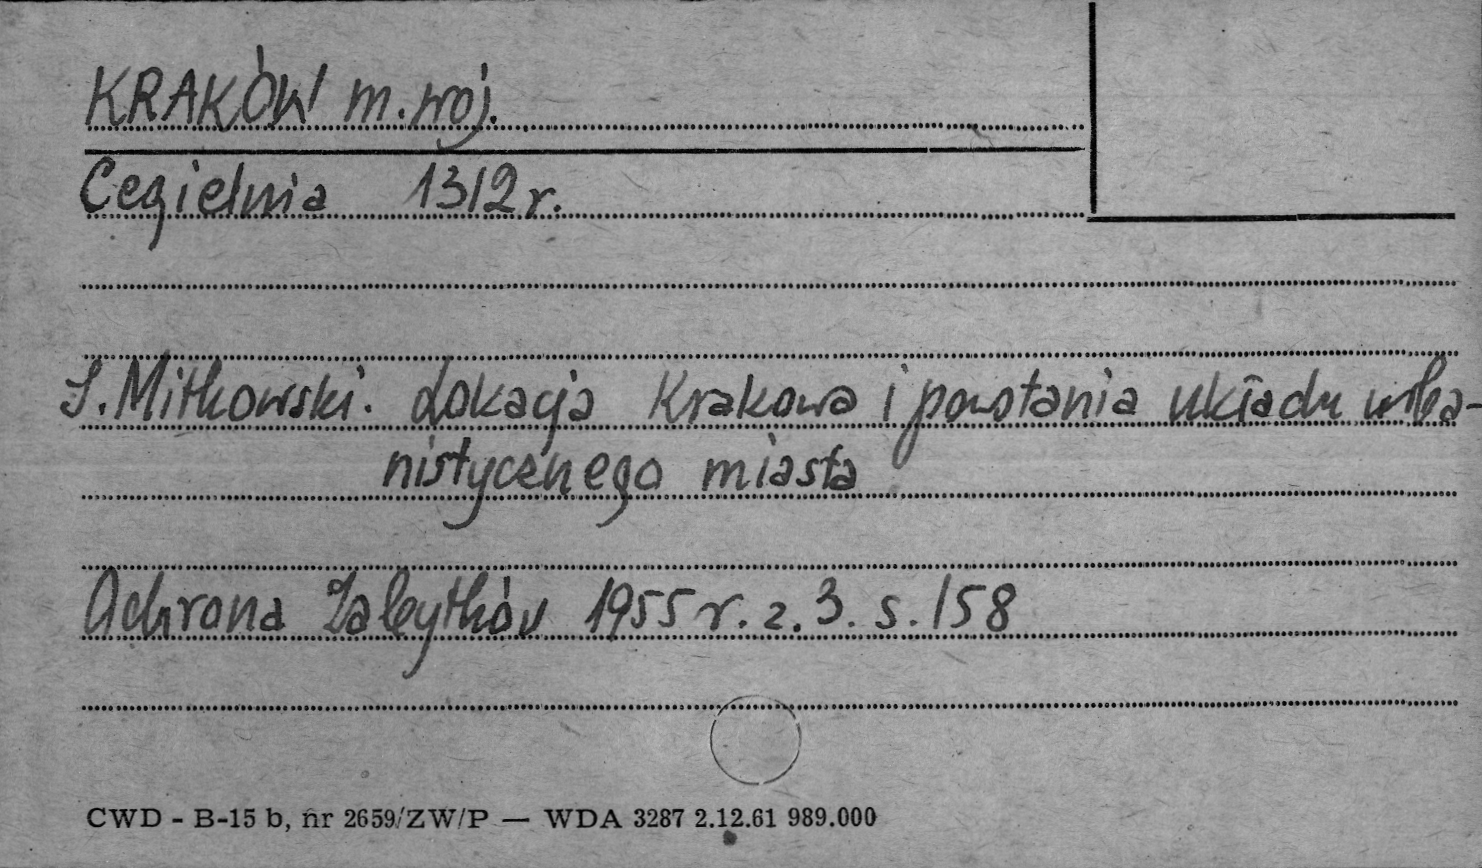 KRAKÓW m. woj.
Cegielnia 1312 r.
J. Mitkowski. Lokacja Krakowa i powstania układu urba-
nistycznego miasta
Ochrona Zabytków 1955 r. z. 3. s. 158
CWD - B-15 b, nr 2659/ZW/P — WDA 3287 2.12.61 989.000